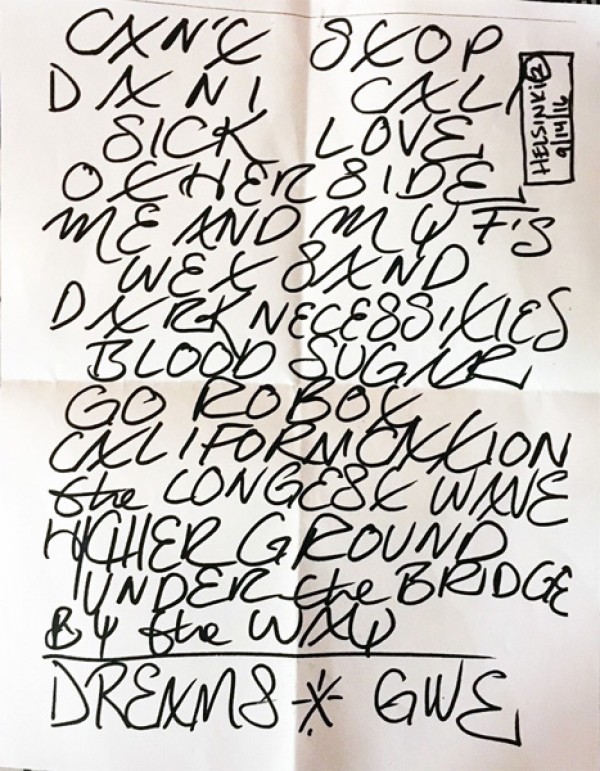 CAN'T STOP
DANI CALI
SICK LOVE
OTHERSIDE
ME AND MY F'S
WET SAND
DARK NECESSITIES
BLOOD SUGAR
GO ROBOT
CALIFORNICATION
the LONGEST WAVE
HIGHER GROUND
UNDER the BRIDGE
BY the WAY
DREAMS * GWE
HELSINKI 2
9/14/16